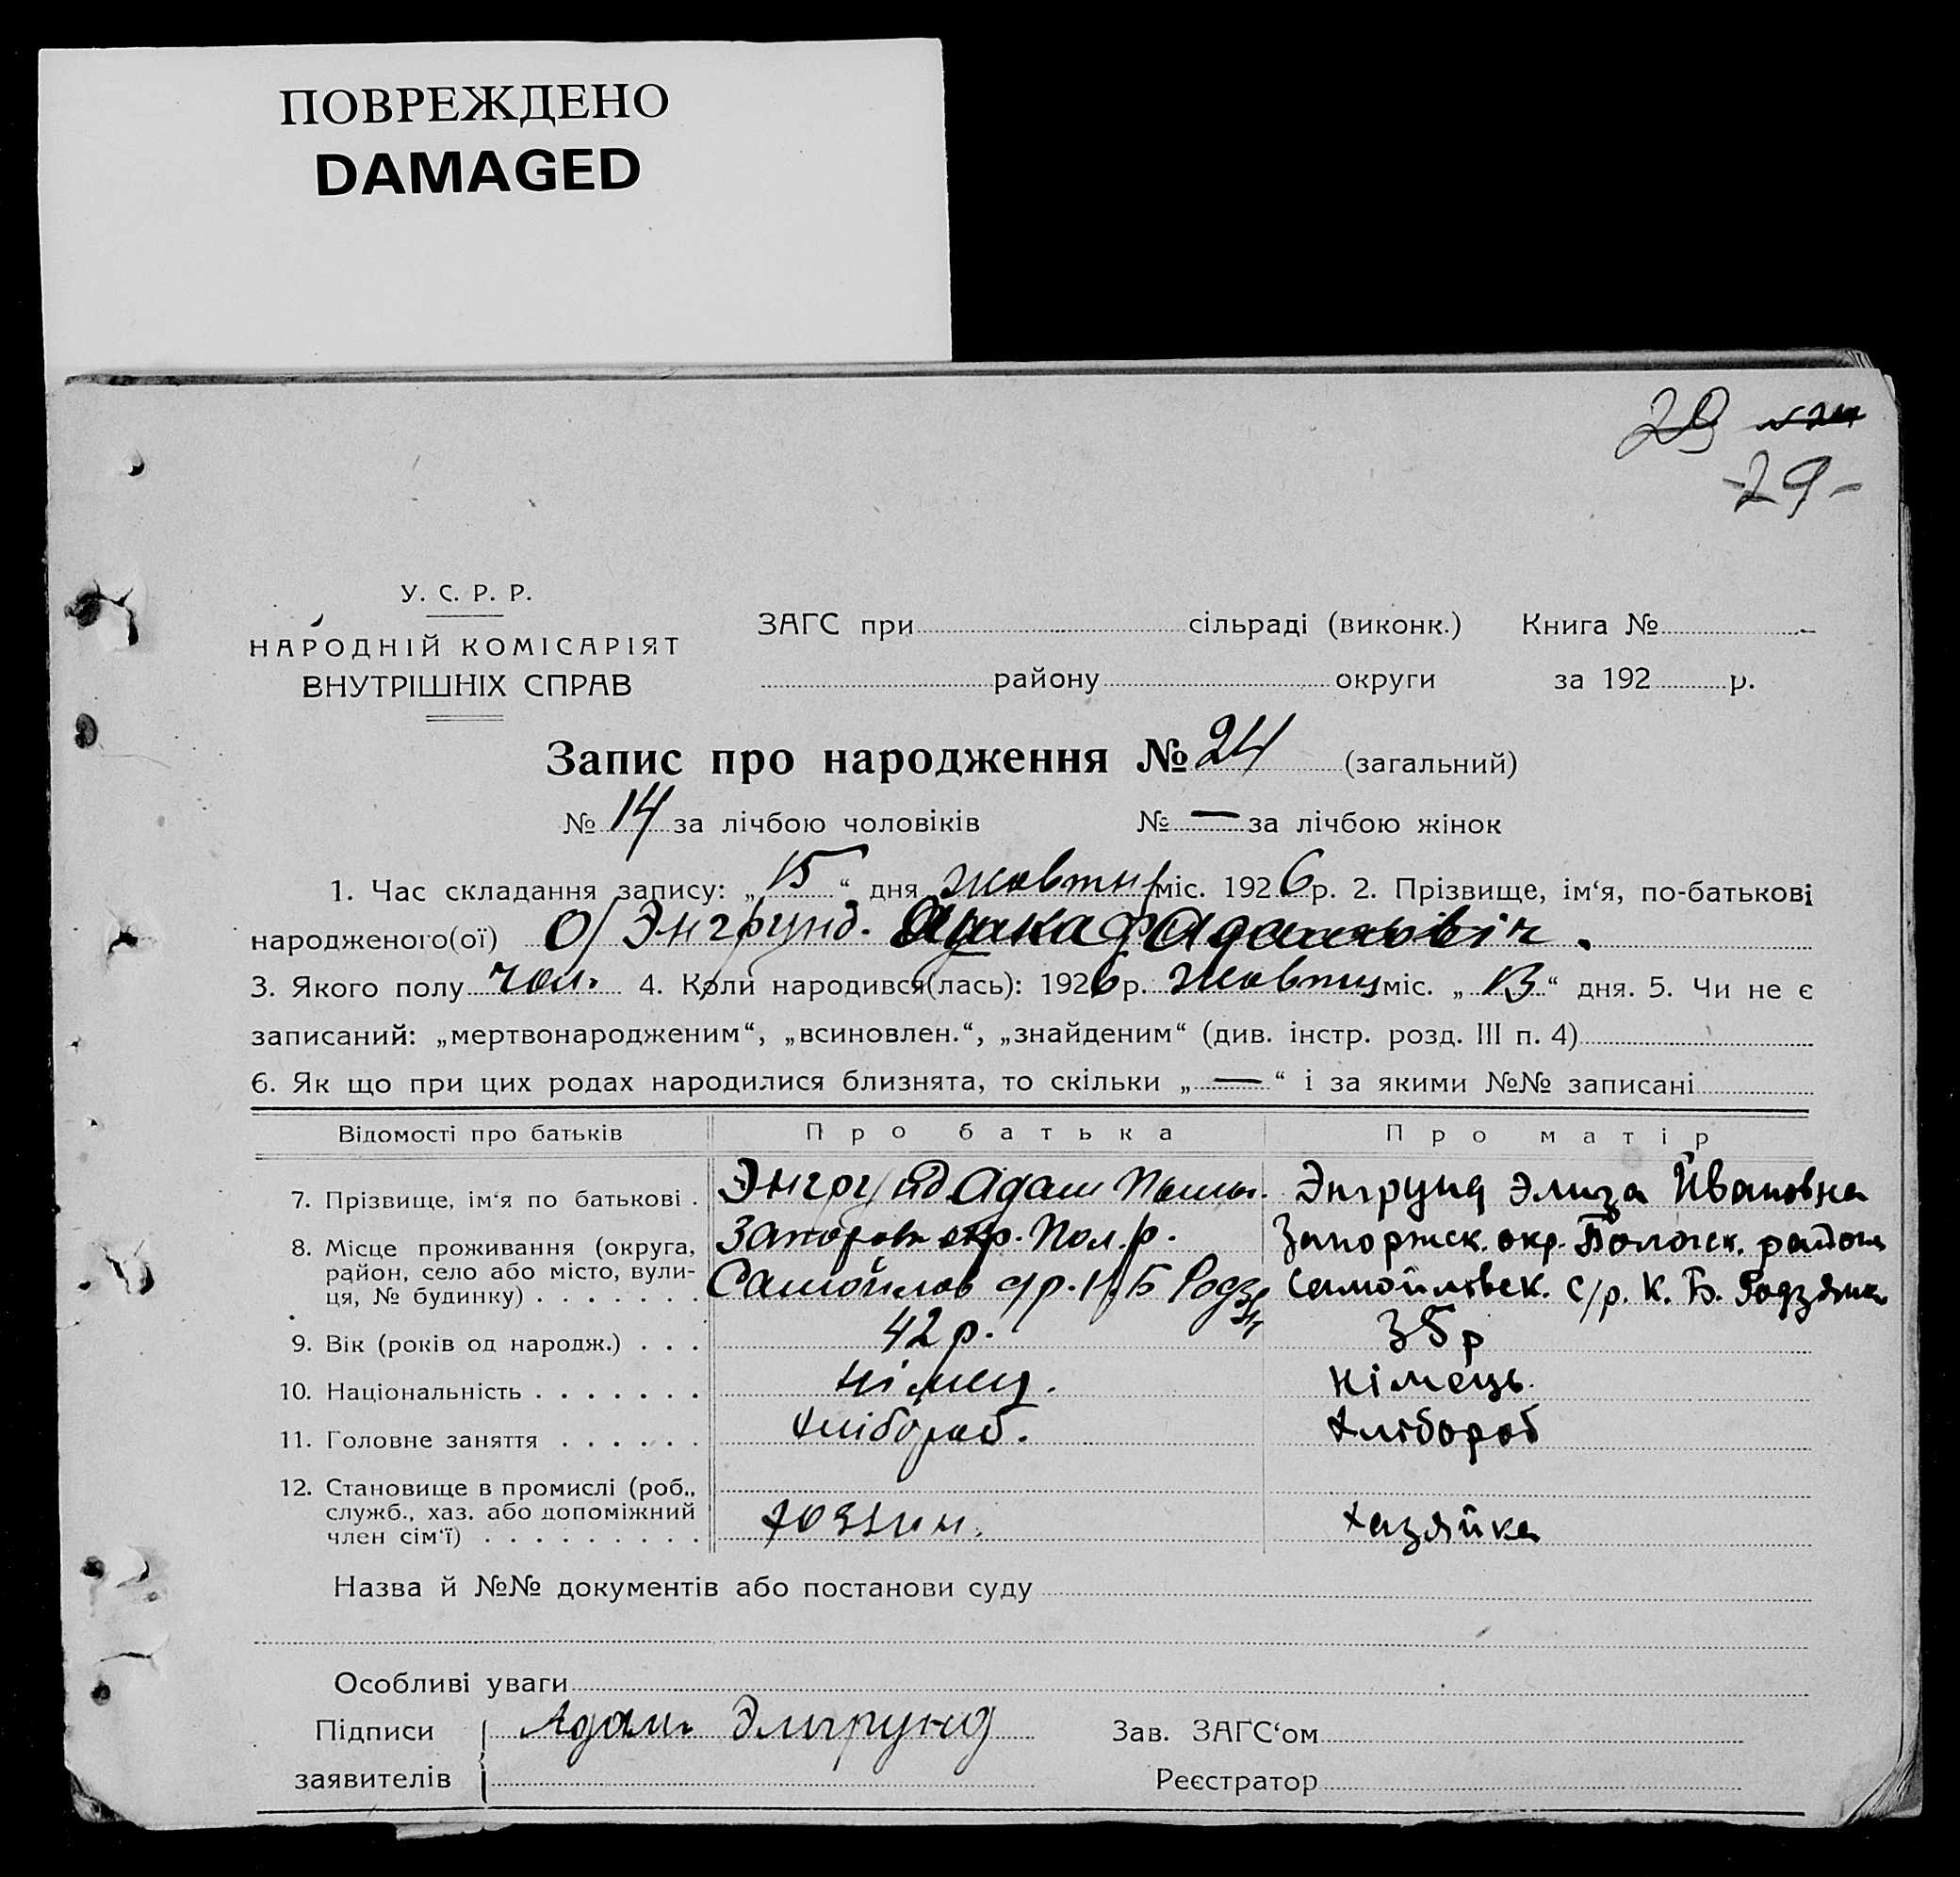 ПОВРЕЖДЕНО
DAMAGED
29 №24
-29-
У. С. Р. Р.
НАРОДНІЙ КОМІСАРІЯТ
ВНУТРІШНІХ СПРАВ
ЗАГС при сільраді (виконк.) Книга №
району округи за 192 р.
Запис про народження № 24 (загальний)
№ 14 за лічбою чоловіків № — за лічбою жінок
1. Час складання запису: „15“ дня жовтня міс. 1926 р. 2. Прізвище, ім‘я, по-батькові
народженого(ої) Энгрунд. Адамовіч.
3. Якого полу чол. 4. Коли народився(лась): 1926 р. жовтня міс. „13“ дня. 5. Чи не є
записаний: „мертвонародженим“, „всиновлен.“, „знайденим“ (див. інстр. розд. III п. 4)
6. Як що при цих родах народилися близнята, то скільки „—“ і за якими №№ записані
Відомості про батьків Про батька Про матір
7. Прізвище, ім‘я по батькові . Энгрунд Адам Энгрунд Элиза Йвановна
8. Місце проживання (округа, район, село або місто, вулиця, № будинку) . . . . . . . Запорож окр. Пол. р. Запоржск. окр. Пологск. район
Самойлов с/р. К. Б Родзя Самойлівск. с/р. К. Б. Родзянка
9. Вік (років од народж.) . . . 42 р. 35 р
10. Національність . . . . . . . німец. німець.
11. Головне заняття . . . . . . хлібороб. хлібороб
12. Становище в промислі (роб., служб., хаз. або допоміжний член сім‘ї) . . . . . . . . . хозяин. хазяйка
Назва й №№ документів або постанови суду
Особливі уваги
Підписи Адам Энгрунд Зав. ЗАГС‘ом
заявителів Реєстратор